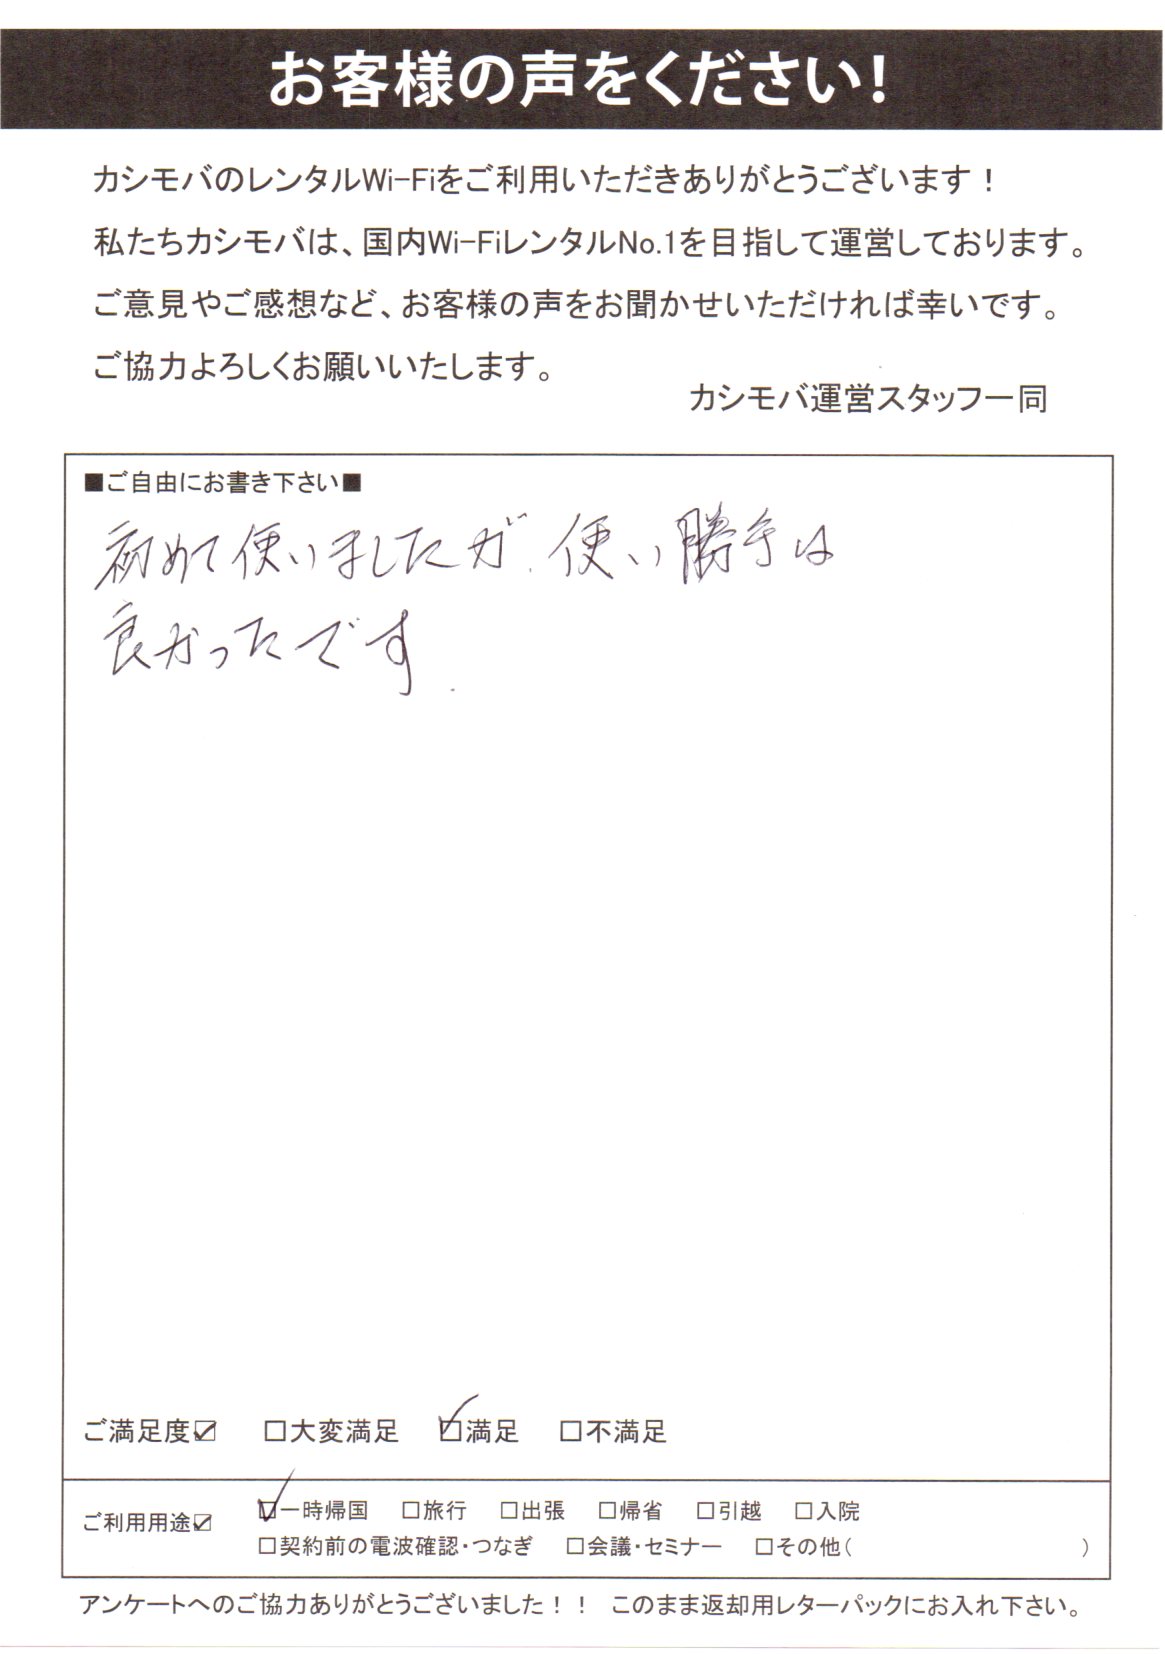 お客様の声をください!
カシモバのレンタルWi-Fiをご利用いただきありがとうございます！
私たちカシモバは、国内Wi-FiレンタルNo.1を目指して運営しております。
ご意見やご感想など、お客様の声をお聞かせいただければ幸いです。
ご協力よろしくお願いいたします。
カシモバ運営スタッフ一同
■ご自由にお書き下さい■
初めて使いましたが、使い勝手は
良かったです.
ご満足度☑ □大変満足 ☑満足 □不満足
ご利用用途☑ ☑一時帰国 □旅行 □出張 □帰省 □引越 □入院
□契約前の電波確認・つなぎ □会議・セミナー □その他( )
アンケートへのご協力ありがとうございました！！ このまま返却用レターパックにお入れ下さい。